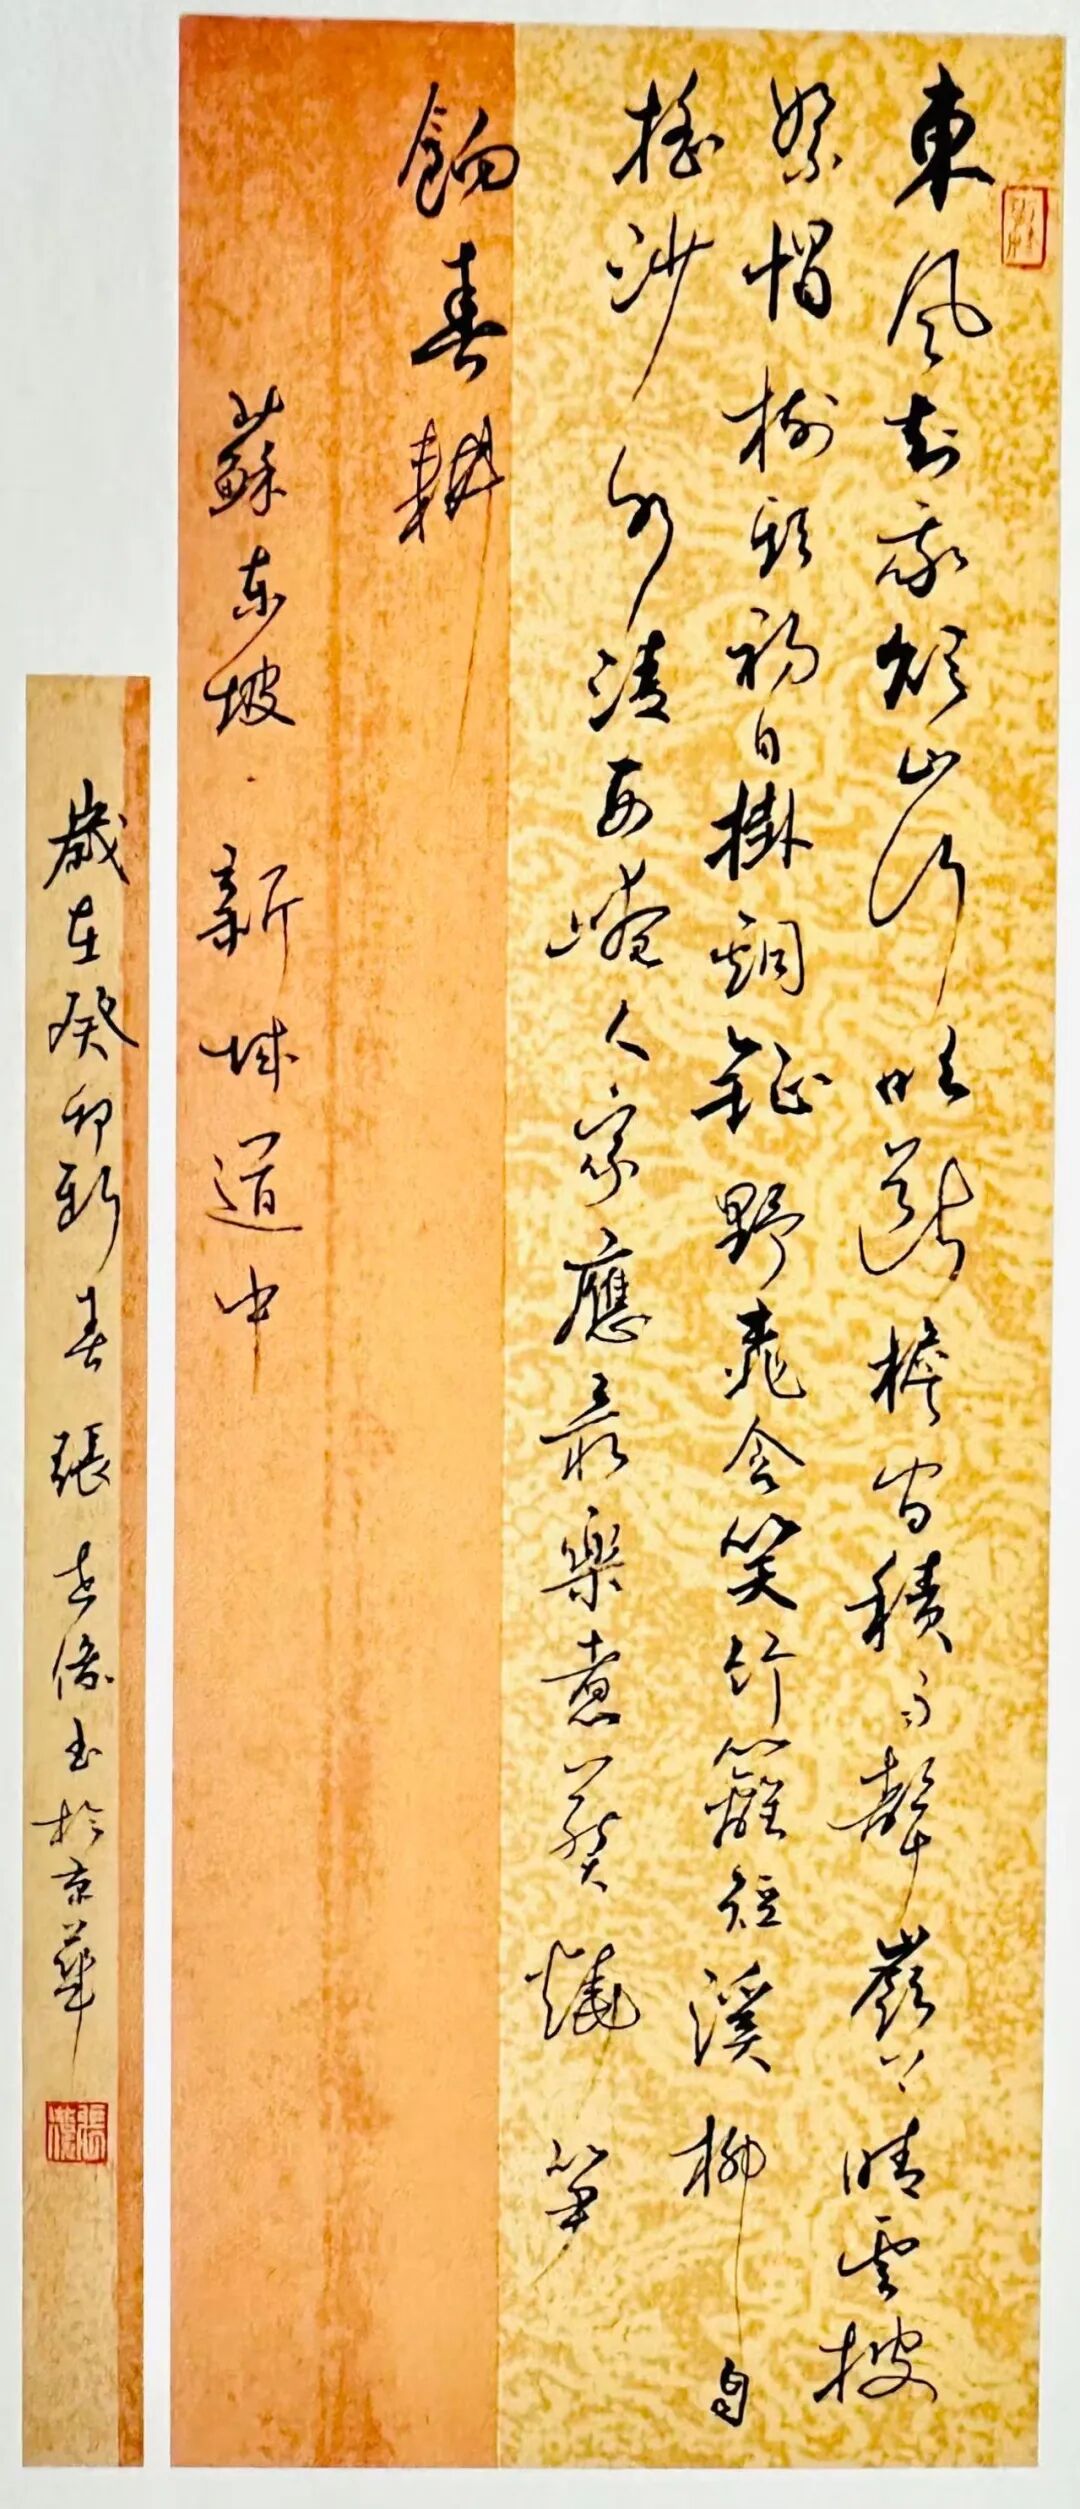 東風知我欲山行吹斷檐間積雨聲嶺上晴雲披
絮帽樹頭初日掛銅鉦野桃含笑竹籬短溪柳自
搖沙水清西崦人家應最樂煮葵燒筍
餉春耕
蘇东坡·新城道中
歲在癸卯新春張書於京華